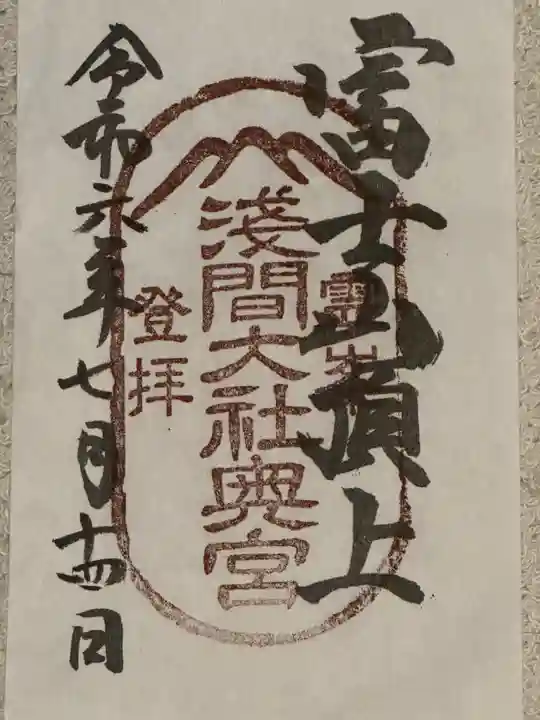 富士山頂上
霊峰
浅間大社奥宮
登拝
令和六年七月十四日